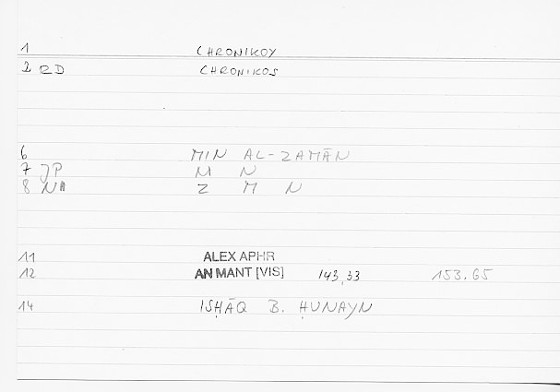 1 CHRONIKOY
2 QD CHRONIKOS
6 MIN AL-ZAMĀN
7 JP M N
8 NA Z M N
11 ALEX APHR
12 AN MANT [VIS] 143,33 153.65
14 ISḤĀQ B. ḤUNAYN